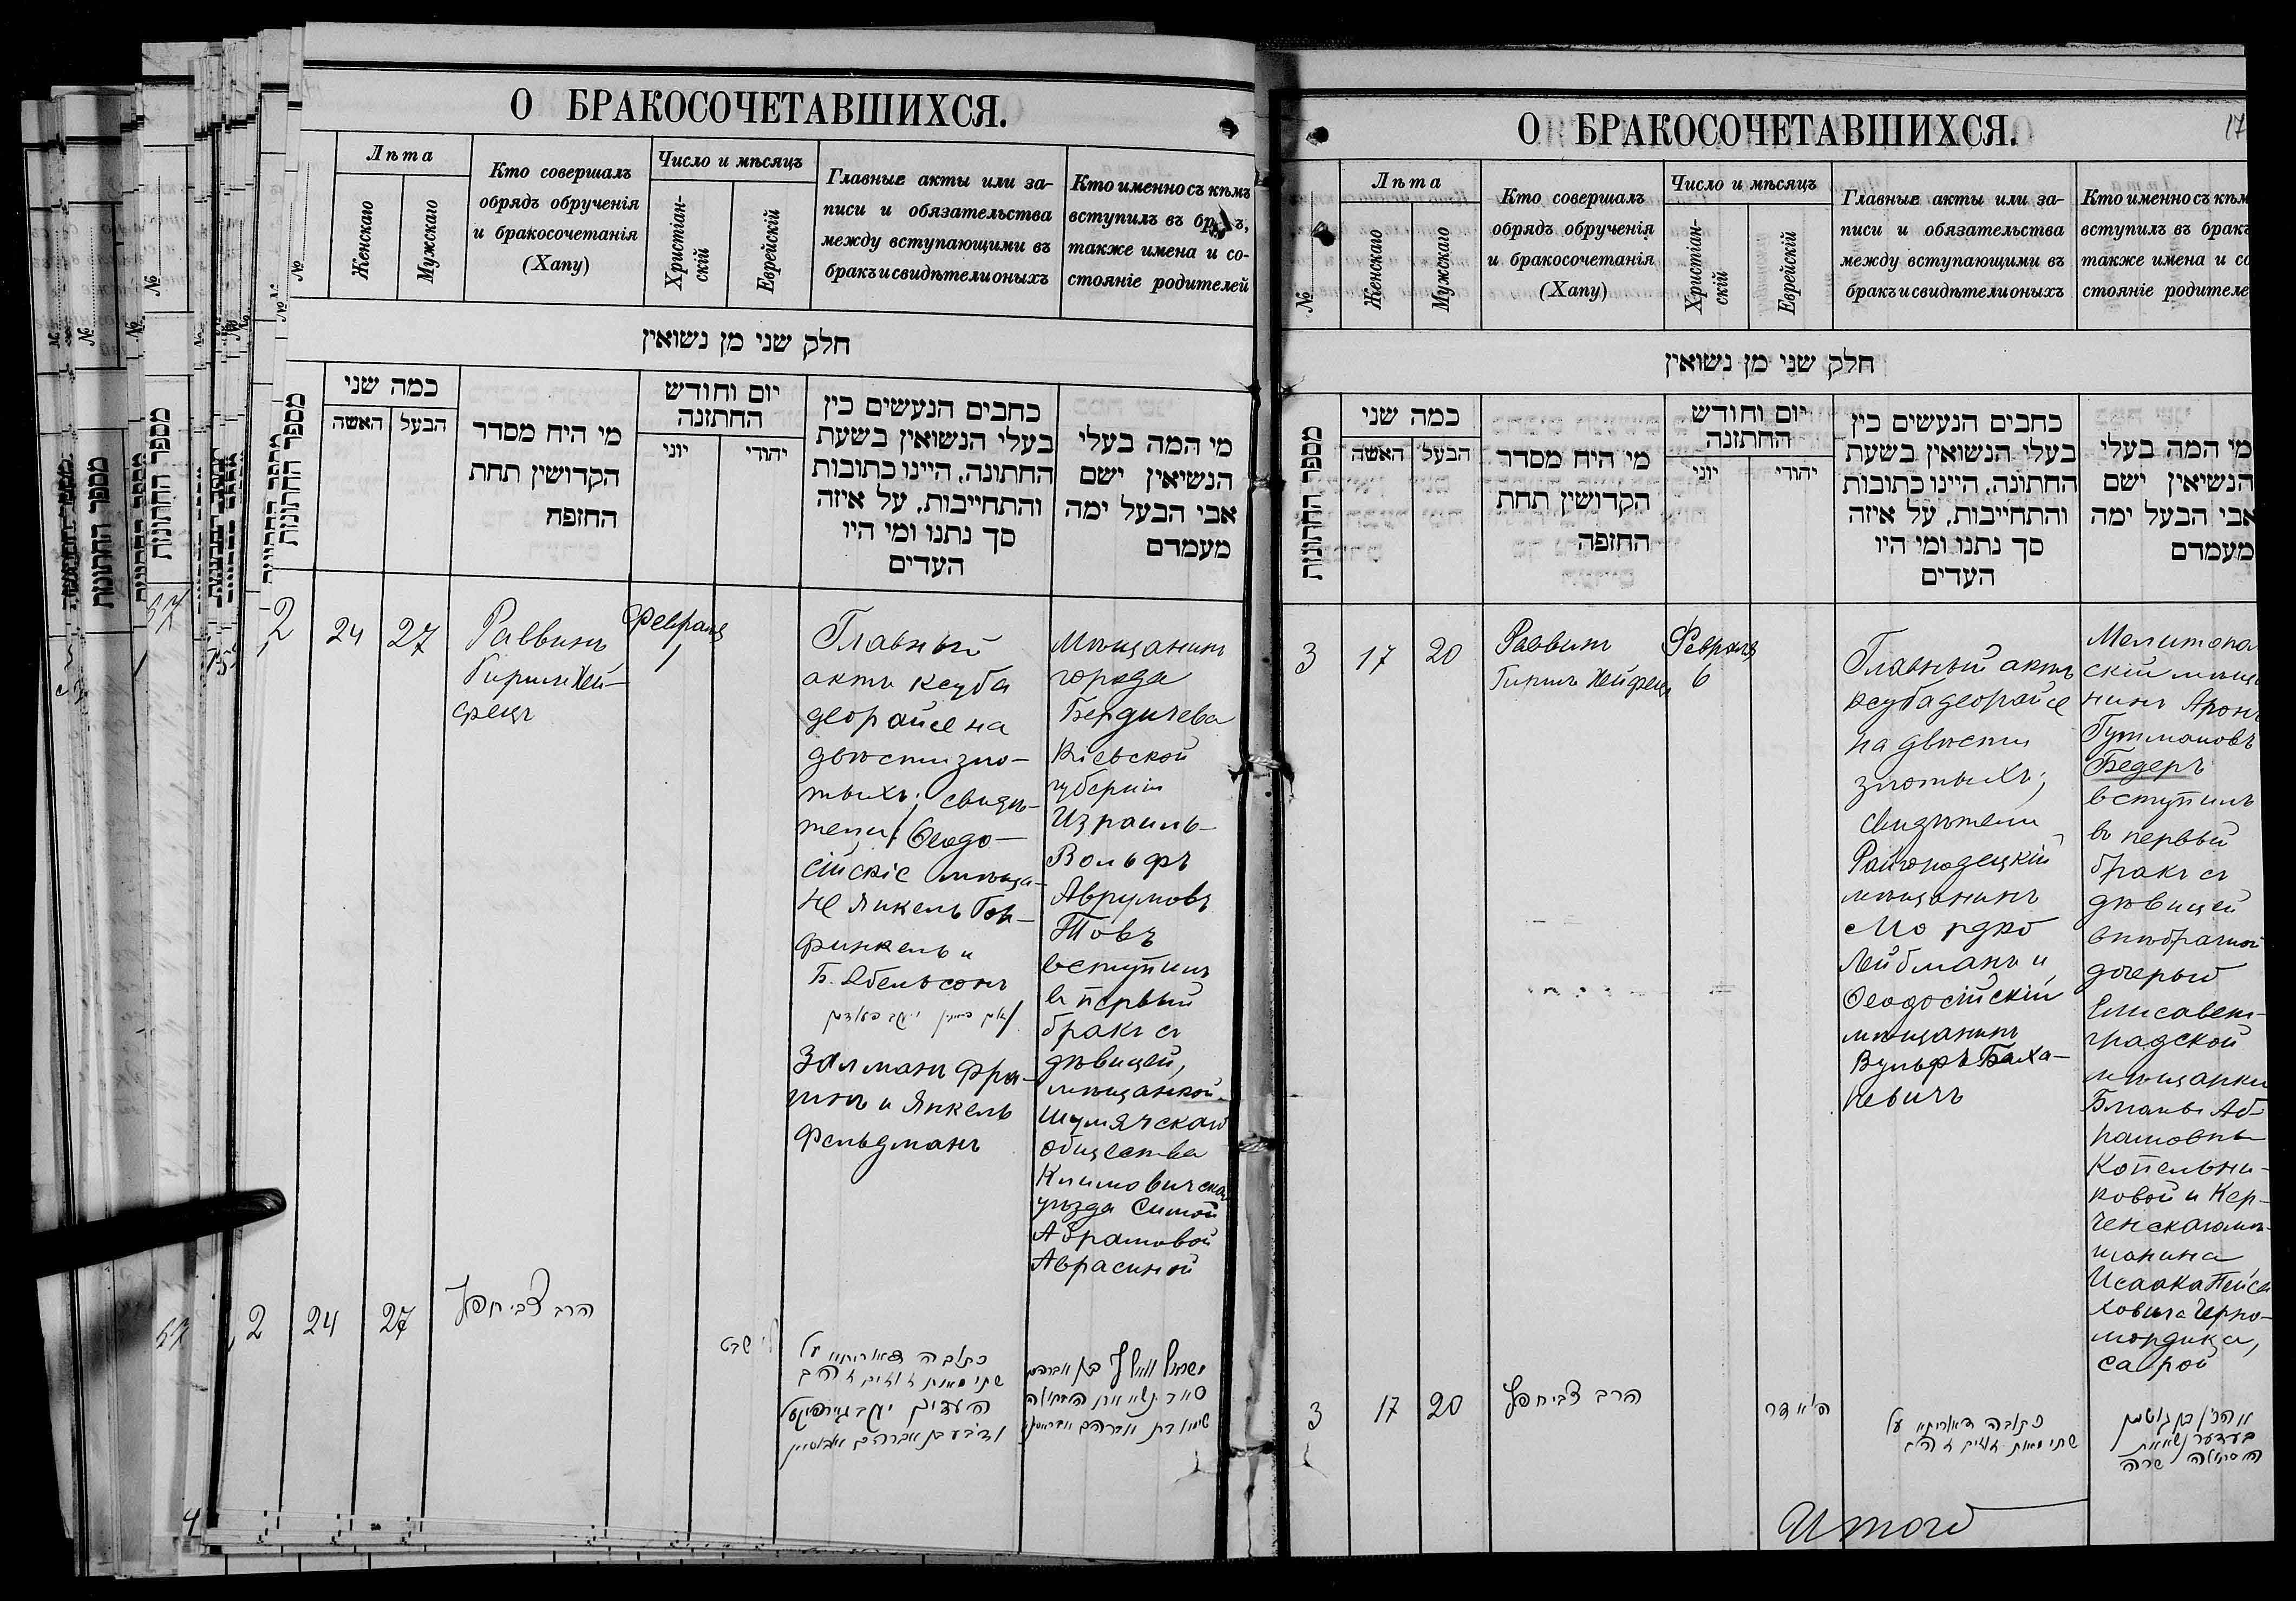 О БРАКОСОЧЕТАВШИХСЯ.
№
Лѣта
Женскаго
Мужскаго
Кто совершалъ
обрядъ обрученія
и бракосочетанія
(Хапу)
Число и мѣсяцъ
Христіан-
скій
Еврейскій
Главные акты или за-
писи и обязательства
между вступающими въ
бракъ и свидѣтели оныхъ
Кто именно съ кѣмъ
вступилъ въ бракъ,
также имена и со-
стояніе родителей
חלק שני מן נשואין
מספר החתונות
כמה שני
האשה
הבעל
מי היח מסדר
הקדושין תחת
החופה
יום וחודש
החתונה
יוני
יהודי
כתבים הנעשים בין
בעלי הנשואין בשעת
החתונה, היינו כתובות
והתחייבות, על איזה
סך נתנו ומי היו
העדים
מי המה בעלי
הנשיאין ישם
אבי הבעל ימה
מעמדם
2
24
27
Раввинъ
Гиршъ Хей-
фецъ
Февраля
1
Главный
актъ ксуба
деорайсе на
двѣсти зло-
тыхъ; свидѣ-
тели: Ѳеодо-
сійскіе мѣща-
не Янкель Гор-
финкель и
Б. Абельсонъ
Залманъ
и Янкель
Фельдманъ
Мѣщанинъ
города
Бердичева
Кіевской
губерніи
Израиль-
Вольфъ
Аврумовъ
Товъ
вступилъ
въ первый
бракъ съ
дѣвицей,
мѣщанкой
Шумячскаго
общества
Климовичскаго
уѣзда Симой
Абрамовой
Аврасиной
2
24
27
הרב צבי חפץ
שבט
כתובה דאורייתא על
שתי מאות זוזים זהב
העדים יעקב גורפינקעל
ישראל וואלף בן אברהם
О БРАКОСОЧЕТАВШИХСЯ.
17
№
Лѣта
Женскаго
Мужскаго
Кто совершалъ
обрядъ обрученія
и бракосочетанія
(Хапу)
Число и мѣсяцъ
Христіан-
скій
Еврейскій
Главные акты или за-
писи и обязательства
между вступающими въ
бракъ и свидѣтели оныхъ
Кто именно съ кѣм
вступилъ въ бракъ
также имена и со
стояніе родителе
חלק שני מן נשואין
מספר החתונות
כמה שני
האשה
הבעל
מי היח מסדר
הקדושין תחת
החופה
יום וחודש
החתונה
יוני
יהודי
כתבים הנעשים בין
בעלי הנשואין בשעת
החתונה, היינו כתובות
והתחייבות, על איזה
סך נתנו ומי היו
העדים
מי המה בעלי
הנשיאין ישם
אבי הבעל ימה
מעמדם
3
17
20
Раввинъ
Гиршъ Хейфецъ
Февраля
6
Главный актъ
ксуба деорайсе
на двѣсти
злотыхъ;
свидѣтели
Райгородецкій
мѣщанинъ
Мордко
Лейбманъ и
Ѳеодосійскій
мѣщанинъ
Вульфъ Баха-
ревичъ
Мелитополь
скій мѣща
нинъ Аронъ
Гутмановъ
Бедеръ
вступилъ
въ первый
бракъ съ
дѣвицей
внѣбрачной
дочерью
Елисавет-
градской
мѣщанки
Бланы Аб-
рамовны
Копельни-
ковой и Кер-
ченскаго мѣ-
щанина
Исаака Пейса
ховича Черно-
мордика,
Сарой
3
17
20
הרב צבי חפץ
ה' אדר
כתובה דאורייתא על
שתי מאות זוזים זהב
אהרן בן גוטמן
בעדער נשא את
הבתולה שרה
Итого